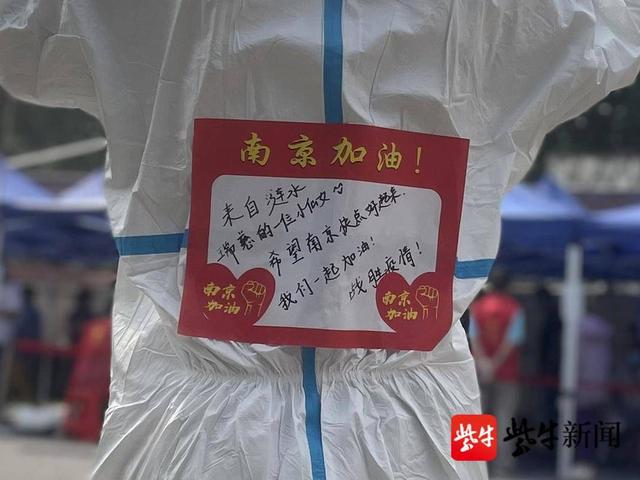 南京加油！
来自涟水
瑞慈的一位小仙女
希望南京快点好起来
我们一起加油！
战胜疫情！
南京
加油
南京
加油
紫牛
紫牛新闻